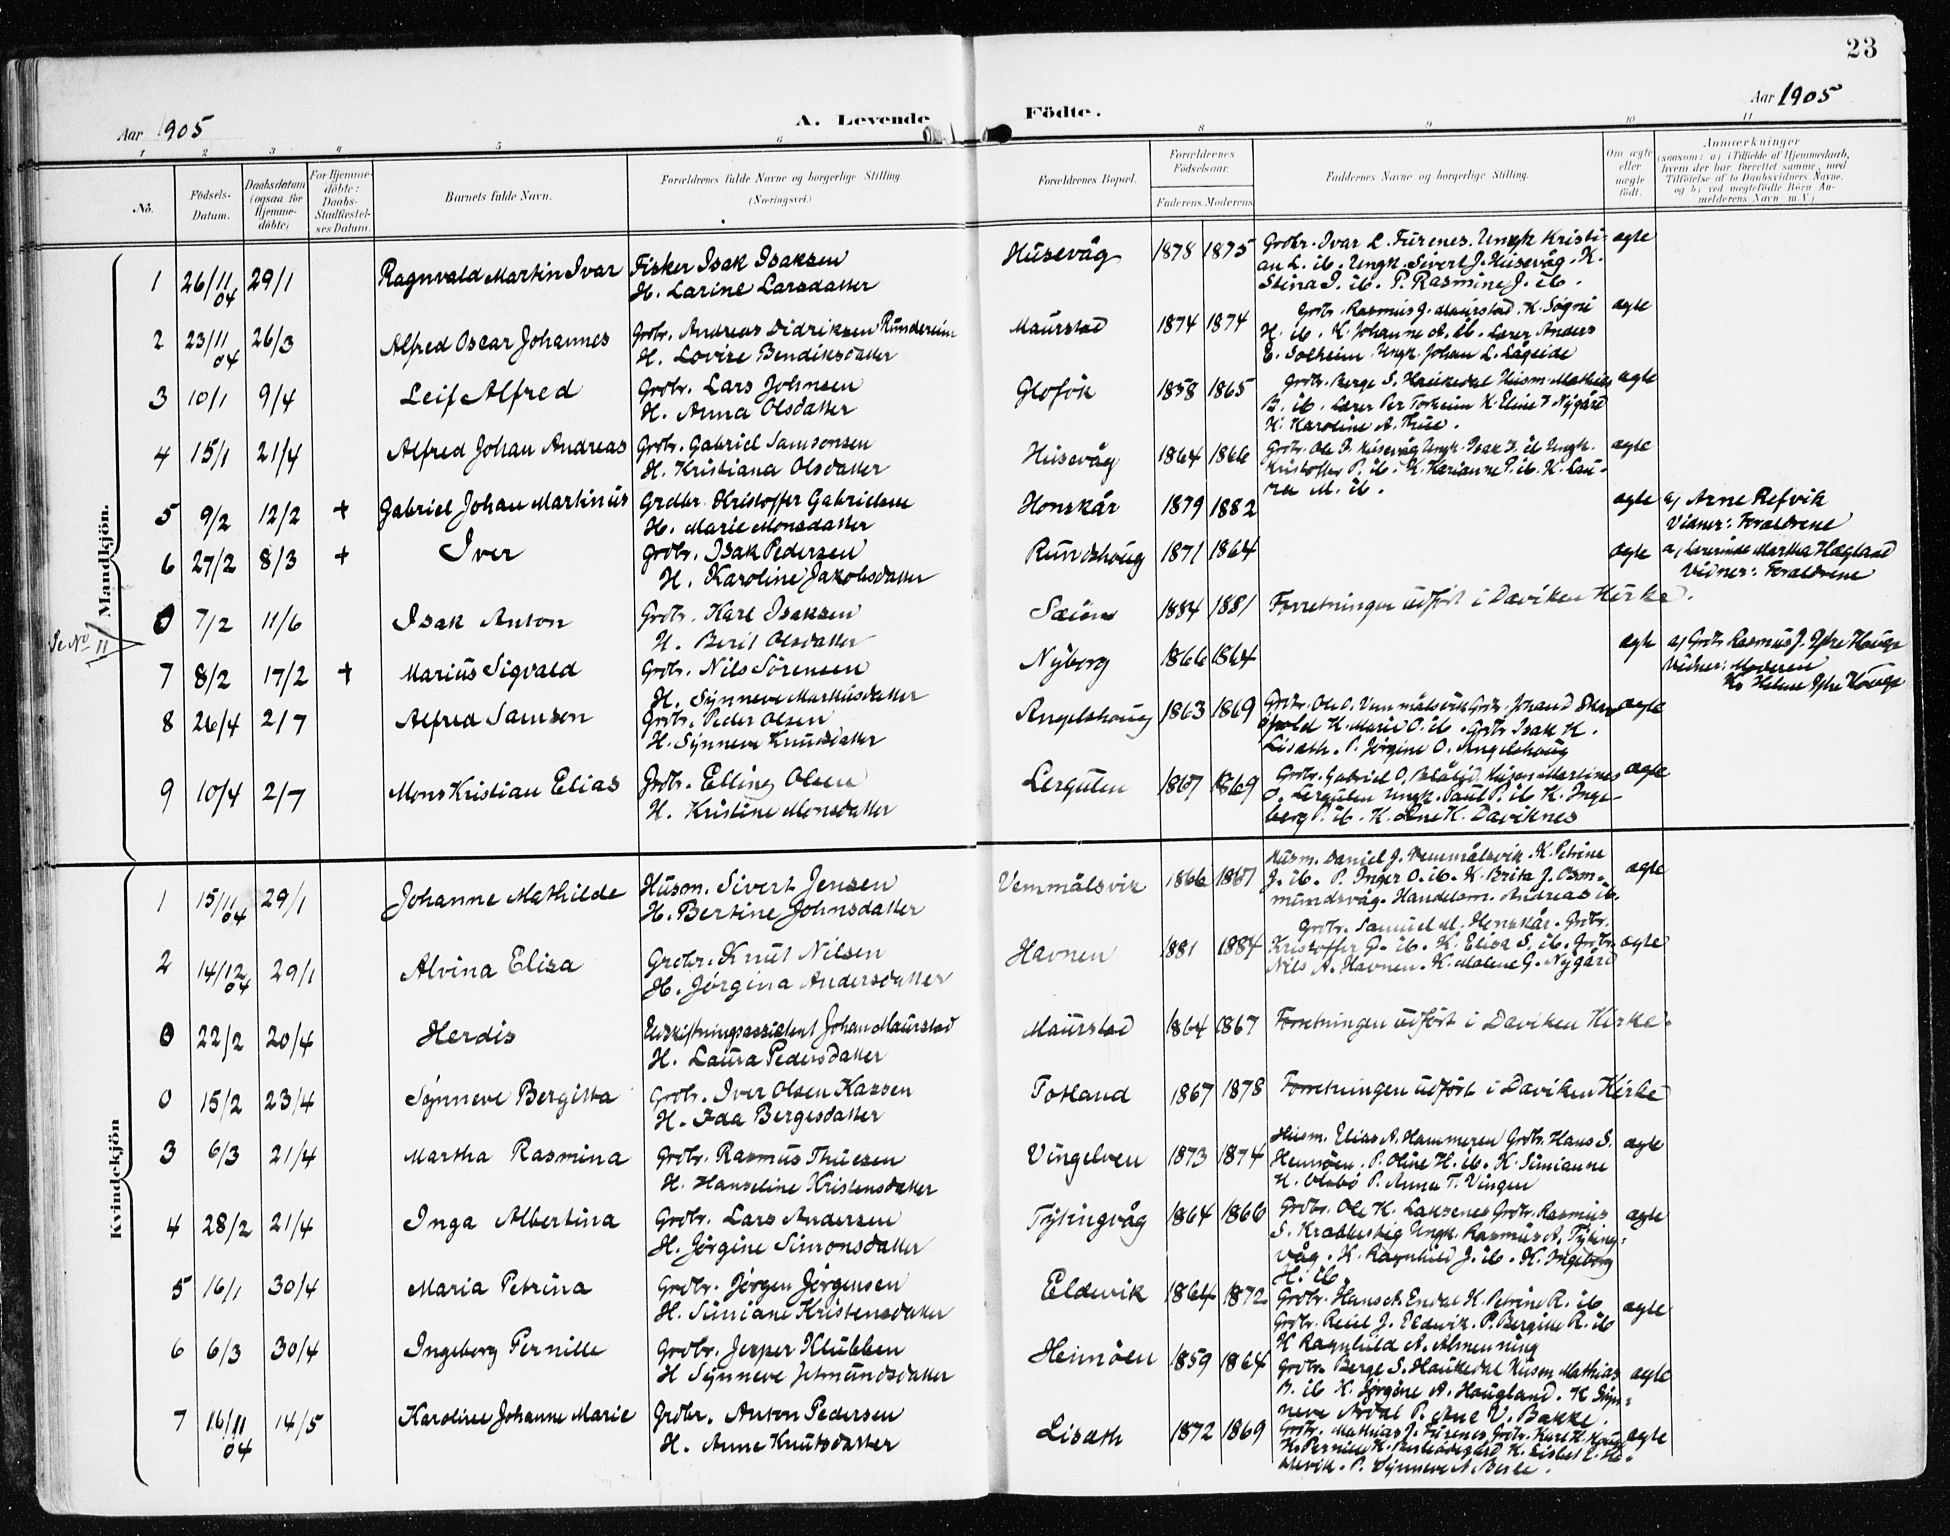 23
Aar 1905
A. Levende
Födte.
Aar 1905
1 2 3 4 5 6 8 9 10 11
No.
Födsels-Datum.
Daabsdatum (ogsaa for Hjemmedöbte)
For Hjemmedöbte: Daabs-Stadfæstelses Datum.
Barnets fulde Navn.
Forældrenes fulde Navne og borgerlige Stilling. (Næringsvei.)
Forældrenes Bopæl.
Forældrenes Födselsaar.
Faderens. Moderens
Faddernes Navne og borgerlige Stilling.
Om ægte eller uægte födt.
Anmærkninger
(saasom: a) i Tilfælde af Hjemmedaab, hvem der har forrettet samme, med Tilföielse af to Daabsvidners Navne, og b) ved uægtefödte Börn Anmelderens Navn m.V.)
Mandkjön.
1 26/11 04 29/1 Ragnvald Martin Ivar Fisker Isak Isaksen
H. Larine Larsdatter Husevåg 1878 1875 Grdbr. Ivar L. Furenes. Ungk Kristi-
an L. ib. Ungk. Sivert J. Husevåg. K.
Stina I. ib. P. Rasmine J. ib. ægte
2 23/11 04 26/3 Alfred Oscar Johannes Grdbr. Andreas Didriksen Rundereim
H. Lovise Bendiksdatter Maurstad 1874 1874 Grdbr. Rasmus J. Maurstad. K. Søgni
H. ib. K. Johanne A. ib. Lærer Anders
E. Solheim Ungk. Johan L. Lågeide ægte
3 10/1 9/4 Leif Alfred Grdbr. Lars Johnsen
H. Anna Olsdatter Glofök 1858 1865 Grdbr. Berge S. Haukedal Husm. Mathias
B. ib. Lærer Per Torheim K. Eline T Nygård
K. Karoline A. Thue. ægte
4 15/1 21/4 Alfred Johan Andreas Grdbr. Gabriel Samsonsen
H. Kristiana Olsdatter Husevåg 1864 1866 Grdbr. Ole P. Husevåg Ungk. Isak I. ib Ungk.
Kristoffer P. ib. K. Karianne P. ib. K. Lau-
ra M. ib. ægte
5 9/2 12/2 + Gabriel Johan Martinus Grdbr. Kristoffer Gabrielsen
H. Marie Monsdatter Honskår 1879 1882 ægte a) Arne Refvik
Vidner: Forældrene
6 27/2 8/3 + Iver Grdbr. Isak Pedersen
H. Karoline Jakobsdatter Rundshoug 1871 1864 ægte a) Lærerinde Martha Hægland
Vidner: Forældrene
Se No 11
0 7/2 11/6 Isak Anton Grdbr. Karl Isaksen
H. Berit Olsdatter 1884 1881 Forretningen udført i Daviken Kirke.
7 8/2 17/2 + Marius Sigvald Grdbr. Nils Sørensen
H. Synneve Markusdatter Nyborg 1866 1864 ægte a) Grdbr Rasmus J. Ytre Hauge
Vidner: Moderen
K. Helene Ytre Hauge
8 26/4 2/7 Alfred Samson Grdbr. Peder Olsen
H. Synneve Knutsdatter Angelshoug 1863 1869 Grdbr. Ole O. Vemmålsvik Grdbr. Johan
K. Marie O. ib. Grdbr Isak K.
Lisæth. P. Jørgine O. Angelshoug ægte
9 10/4 2/7 Mons Kristian Elias Grdbr. Elling Olsen
H. Kristine Monsdatter Lerguten 1867 1869 Grdbr. Gabriel O. Blålid, Husm Martines
O. Lerguten Ungk. Paul P. ib K. Inge-
berg P. ib. K. Ane K. Daviknes ægte
Kvindekjön
1 15/11 04 29/1 Johanne Mathilde Husm. Sivert Jensen
H. Bertine Johnsdatter Vemmålsvik 1866 1867 Husm. Daniel J. Vemmålsvik. K. Petrine
J. ib. P. Inger O. ib. K. Brita J. Osm-
mundsvåg. Handelsm. Andreas ib. ægte
2 14/12 04 29/1 Alvina Elisa Grdbr. Knut Nilsen
H. Jørgina Andersdatter Havnen 1881 1884 Grdbr. Samuel M. Henskår. Grdbr.
Kristoffer G. ib. K. Elisa S. ib. Grdbr.
Nils A. Havnen. K. Malene G. Nygård ægte
0 22/2 20/4 Herdis Udskiftningsassistent Johan Maurstad
H. Laura Pedersdatter Maurstad 1864 1867 Forretningen udført i Daviken Kirke.
0 15/2 23/4 Synneve Bergitta Grdbr. Iver Olsen Kassen
H. Ida Bergesdatter Totland 1867 1878 Forretningen udført i Daviken Kirke
3 6/3 21/4 Martha Rasmina Grdbr. Rasmus Thuesen
H. Hanseline Kristensdatter Vingelven 1873 1874 Husm. Elias A. Hammeren Grdbr. Hans S.
Hennøen. P. Oline H. ib. K. Simianne
H. Olsbø P. Anna T. Vingen ægte
4 28/2 21/4 Inga Albertina Grdbr. Lars Andersen
H. Jørgine Simonsdatter Tytingvåg 1864 1866 Grdbr. Ole K. Laksenes Grdbr. Rasmus
S. Krabbestig Ungk. Rasmus A. Tyting-
våg. K. Ragnhild J. ib. K. Ingeborg
H. ib. ægte
5 16/1 30/4 Maria Petrina Grdbr. Jørgen Jørgensen
H. Simiane Kristensdatter Eldevik 1864 1872 Grdbr. Hans A. Endal K. Petrine R. ib
Grdbr. J. Eldevik. P. Bergitte R. ib
K Ragnhild A. Almenning ægte
6 6/3 30/4 Ingeborg Pernille Grdbr. Jesper Klubben
H Synneve Jetmundsdatter Hennøen 1859 1864 Grdbr. Berge S. Haukedal Husm Mathias
B. ib K. Jørgine A. Haugland. K Syn-
neve Årdal P. Ane V. Bakke. ægte
7 16/11 04 14/5 Karoline Johanne Marie Grdbr. Anton Pedersen
H. Anne Knutsdatter Lisæth 1872 1869 Grdbr. Mathias J. Furenes Grdbr. Karl K.
K. Pernille K. K. Lisbet E.
P. Synneve A. Berle. ægte